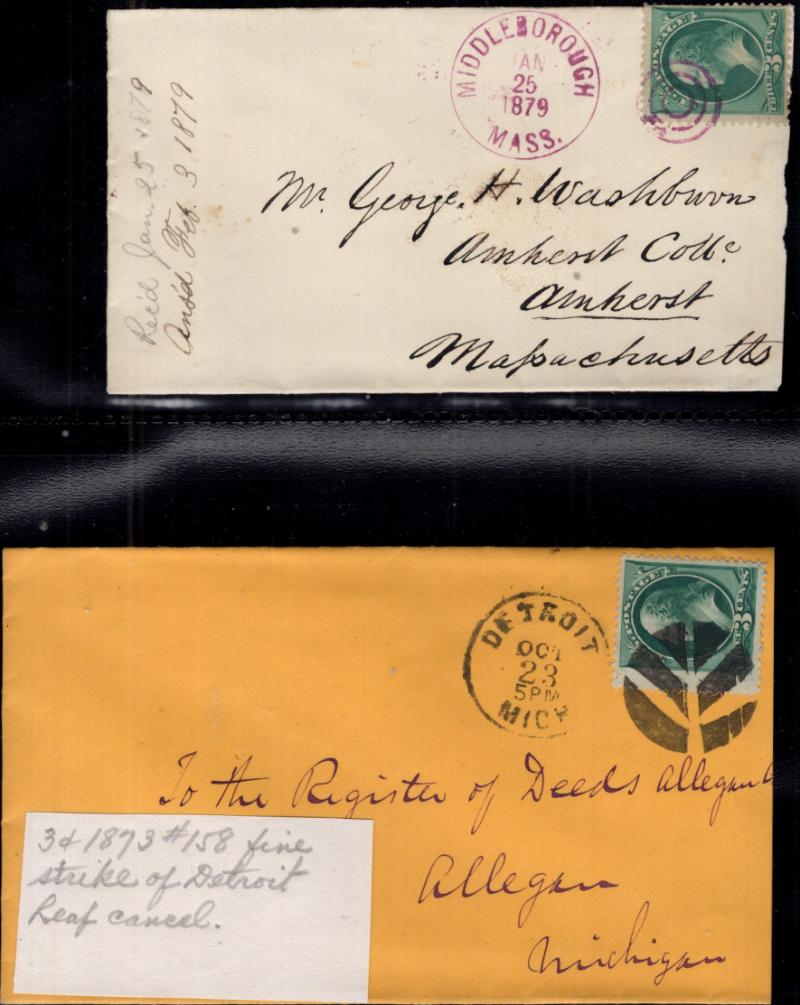 MIDDLEBOROUGH
JAN
25
1879
MASS.
POSTAGE
3 CENTS
Rec'd Jan. 25 1879
Ans'd Feb. 3 1879
Mr. George. H. Washburn
Amherst Colle.
Amherst
Massachusetts
DETROIT
OCT
23
5PM
MICH
POSTAGE
3 CENTS
To the Register of Deeds Allegan
Allegan
Michigan
3¢ 1873 #158 fine
strike of Detroit
Leaf cancel.